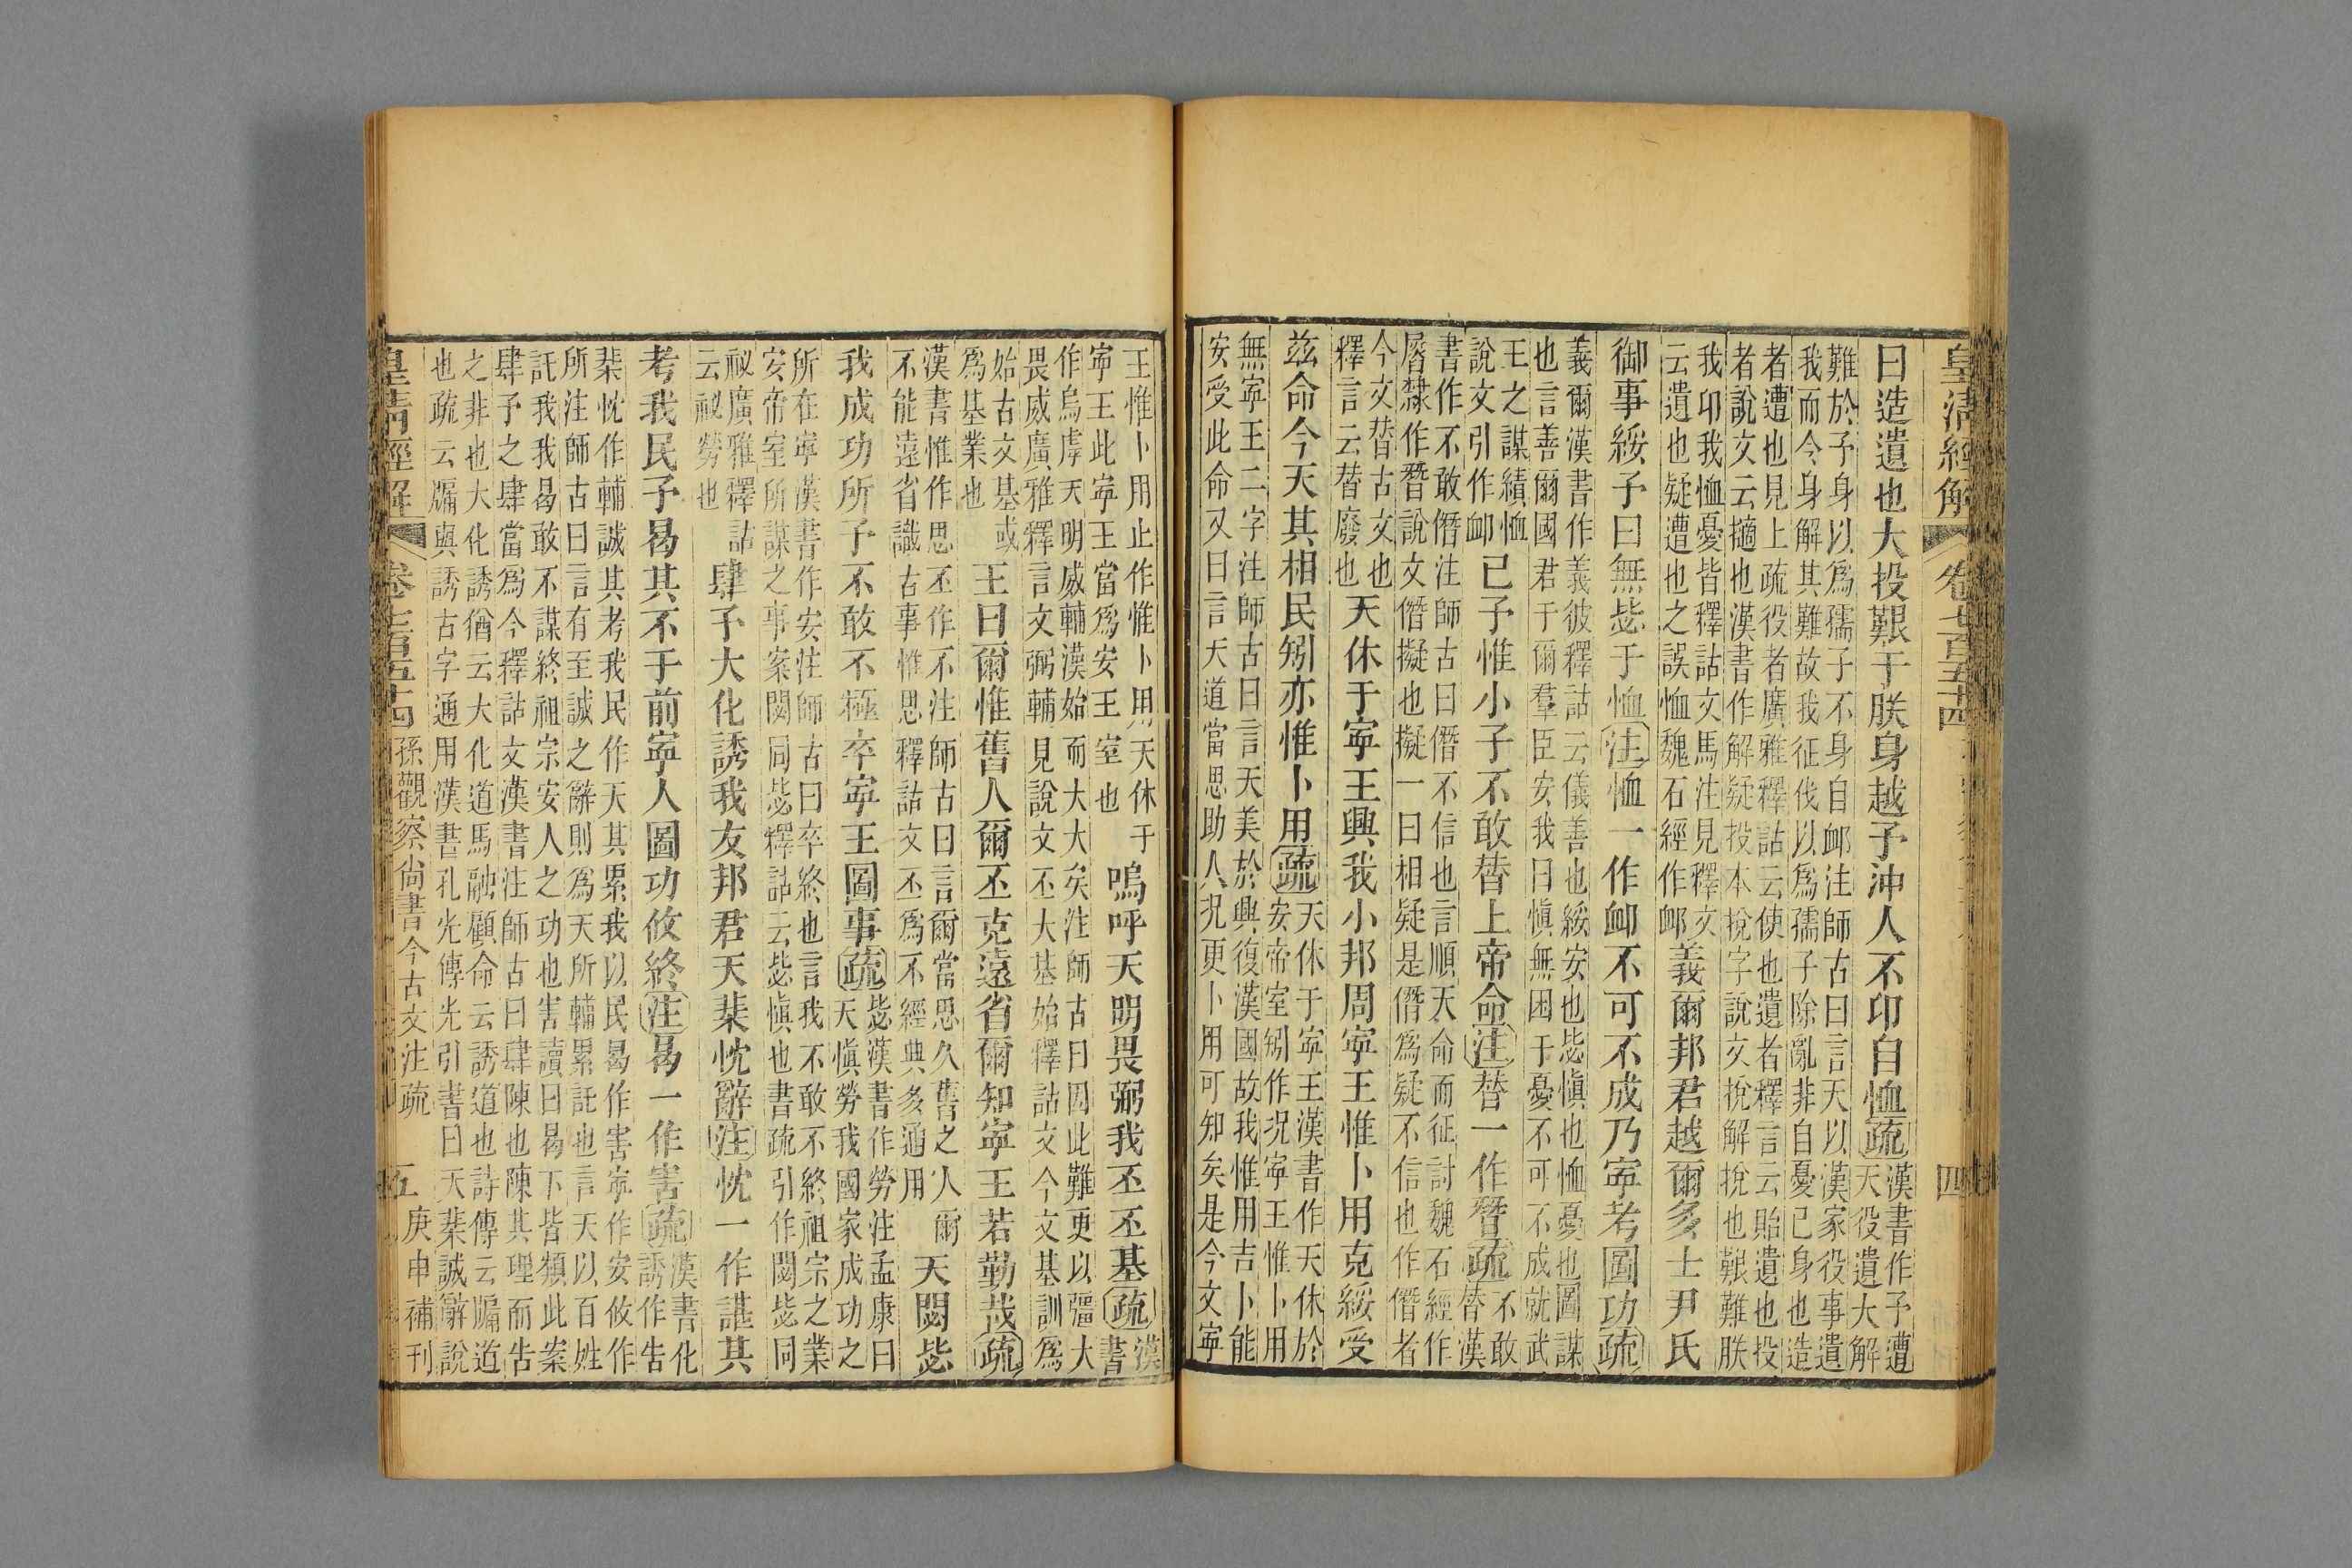 皇清經解 卷七百五十四 四
曰造遺也大投艱于朕身越予沖人不卬自恤疏
漢書作予遭
天役遺大解
難於予身以爲孺子不身自卹注師古曰言天以漢家役事遺
我而今身解其難故我征伐以爲孺子除亂非自憂己身也造
者遭也見上疏役者廣雅釋詁云使也遺者釋言云貽遺也投
者說文云擿也漢書作解疑投本挩字說文挩解挩也艱難朕
我卬我恤憂皆釋詁文馬注見釋文
云遺也疑遭也之誤恤魏石經作卹
義爾邦君越爾多士尹氏
御事綏予曰無毖于恤注恤一作卹不可不成乃寧考圖功疏
義爾漢書作義彼釋詁云儀善也綏安也毖愼也恤憂也圖謀
也言善爾國君于爾羣臣安我曰愼無困于憂不可不成就武
王之謀績恤
說文引作卹
已予惟小子不敢替上帝命注替一作朁疏
不敢
替漢
書作不敢僭注師古曰僭不信也言順天命而征討魏石經作
㬱隸作朁說文僭擬也擬一曰相疑是僭爲疑不信也作僭者
今文替古文也
釋言云替廢也
天休于寧王興我小邦周寧王惟卜用克綏受
茲命今天其相民矧亦惟卜用疏
天休于寧王漢書作天休於
安帝室矧作况寧王惟卜用
無寧王二字注師古曰言天美於興復漢國故我惟用吉卜能
安受此命又曰言天道當思助人况更卜用可知矣是今文寧
王惟卜用止作惟卜用天休于
寧王此寧王當爲安王室也
嗚呼天明畏弼我丕丕基疏
漢
書
作烏虖天明威輔漢始而大大矣注師古曰因此難更以彊大
畏威廣雅釋言文弼輔見說文丕大基始釋詁文今文基訓爲
始古文基或
爲基業也
王曰爾惟舊人爾丕克遠省爾知寧王若勤哉疏
漢書惟作思丕作不注師古曰言爾當思久舊之人爾
不能遠省識古事惟思釋詁文丕爲不經典多通用
天閟毖
我成功所予不敢不極卒寧王圖事疏
毖漢書作勞注孟康曰
天愼勞我國家成功之
所在寧漢書作安注師古曰卒終也言我不敢不終祖宗之業
安帝室所謀之事案閟同毖釋詁云毖愼也書疏引作閟毖同
祕廣雅釋詁
云祕勞也
肆予大化誘我友邦君天棐忱辭注忱一作諶其
考我民予曷其不于前寧人圖功攸終注曷一作害疏
漢書化
誘作告
棐忱作輔誠其考我民作天其累我以民曷作害寧作安攸作
所注師古曰言有至誠之辭則爲天所輔累託也言天以百姓
託我我曷敢不謀終祖宗安人之功也害讀曰曷下皆類此案
肆予之肆當爲今釋詁文漢書注師古曰肆陳也陳其理而告
之非也大化誘猶云大化道馬融顧命云誘道也詩傳云牖道
也疏云牖與誘古字通用漢書孔光傳光引書曰天棐諶辭說
皇清經解 卷七百五十四 孫觀察尚書今古文注疏 五 庚申補刊